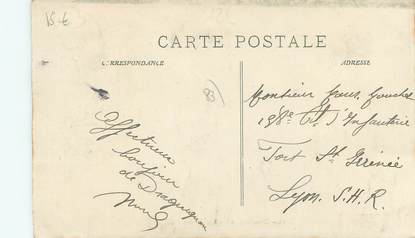 15 €
CARTE POSTALE
CORRESPONDANCE
ADRESSE
83
Affectueux
bonjour
de Draguignan
Monsieur
158e d'Infanterie
Fort St Irénée
Lyon. S.H.R.